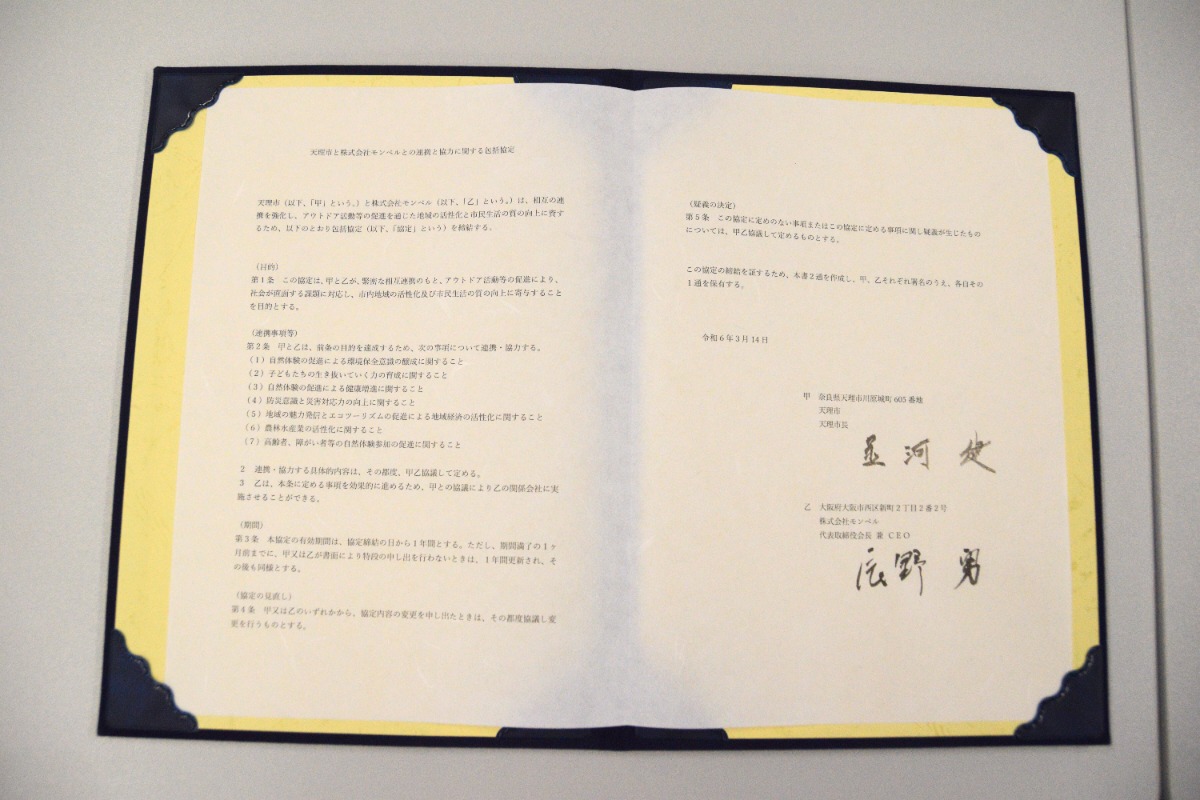 天理市と株式会社モンベルとの連携と協力に関する包括協定
天理市（以下、「甲」という。）と株式会社モンベル（以下、「乙」という。）は、相互の連
携を強化し、アウトドア活動等の促進を通じた地域の活性化と市民生活の質の向上に資す
るため、以下のとおり包括協定（以下、「協定」という）を締結する。
（目的）
第１条　この協定は、甲と乙が、緊密な相互連携のもと、アウトドア活動等の促進により、
社会が直面する課題に対応し、市内地域の活性化及び市民生活の質の向上に寄与すること
を目的とする。
（連携事項等）
第２条　甲と乙は、前条の目的を達成するため、次の事項について連携・協力する。
（１）自然体験の促進による環境保全意識の醸成に関すること
（２）子どもたちの生き抜いていく力の育成に関すること
（３）自然体験の促進による健康増進に関すること
（４）防災意識と災害対応力の向上に関すること
（５）地域の魅力発信とエコツーリズムの促進による地域経済の活性化に関すること
（６）農林水産業の活性化に関すること
（７）高齢者、障がい者等の自然体験参加の促進に関すること
２　連携・協力する具体的内容は、その都度、甲乙協議して定める。
３　乙は、本条に定める事項を効果的に進めるため、甲との協議により乙の関係会社に実
施させることができる。
（期間）
第３条　本協定の有効期間は、協定締結の日から１年間とする。ただし、期間満了の１ヶ
月前までに、甲又は乙が書面により特段の申し出を行わないときは、１年間更新され、そ
の後も同様とする。
（協定の見直し）
第４条　甲又は乙のいずれかから、協定内容の変更を申し出たときは、その都度協議し変
更を行うものとする。
（疑義の決定）
第５条　この協定に定めのない事項またはこの協定に定める事項に関し疑義が生じたもの
については、甲乙協議して定めるものとする。
この協定の締結を証するため、本書２通を作成し、甲、乙それぞれ署名のうえ、各自その
１通を保有する。
令和６年３月14日
甲　奈良県天理市川原城町605番地
天理市
天理市長
並河 健
乙　大阪府大阪市西区新町２丁目２番２号
株式会社モンベル
代表取締役会長 兼 CEO
辰野 勇